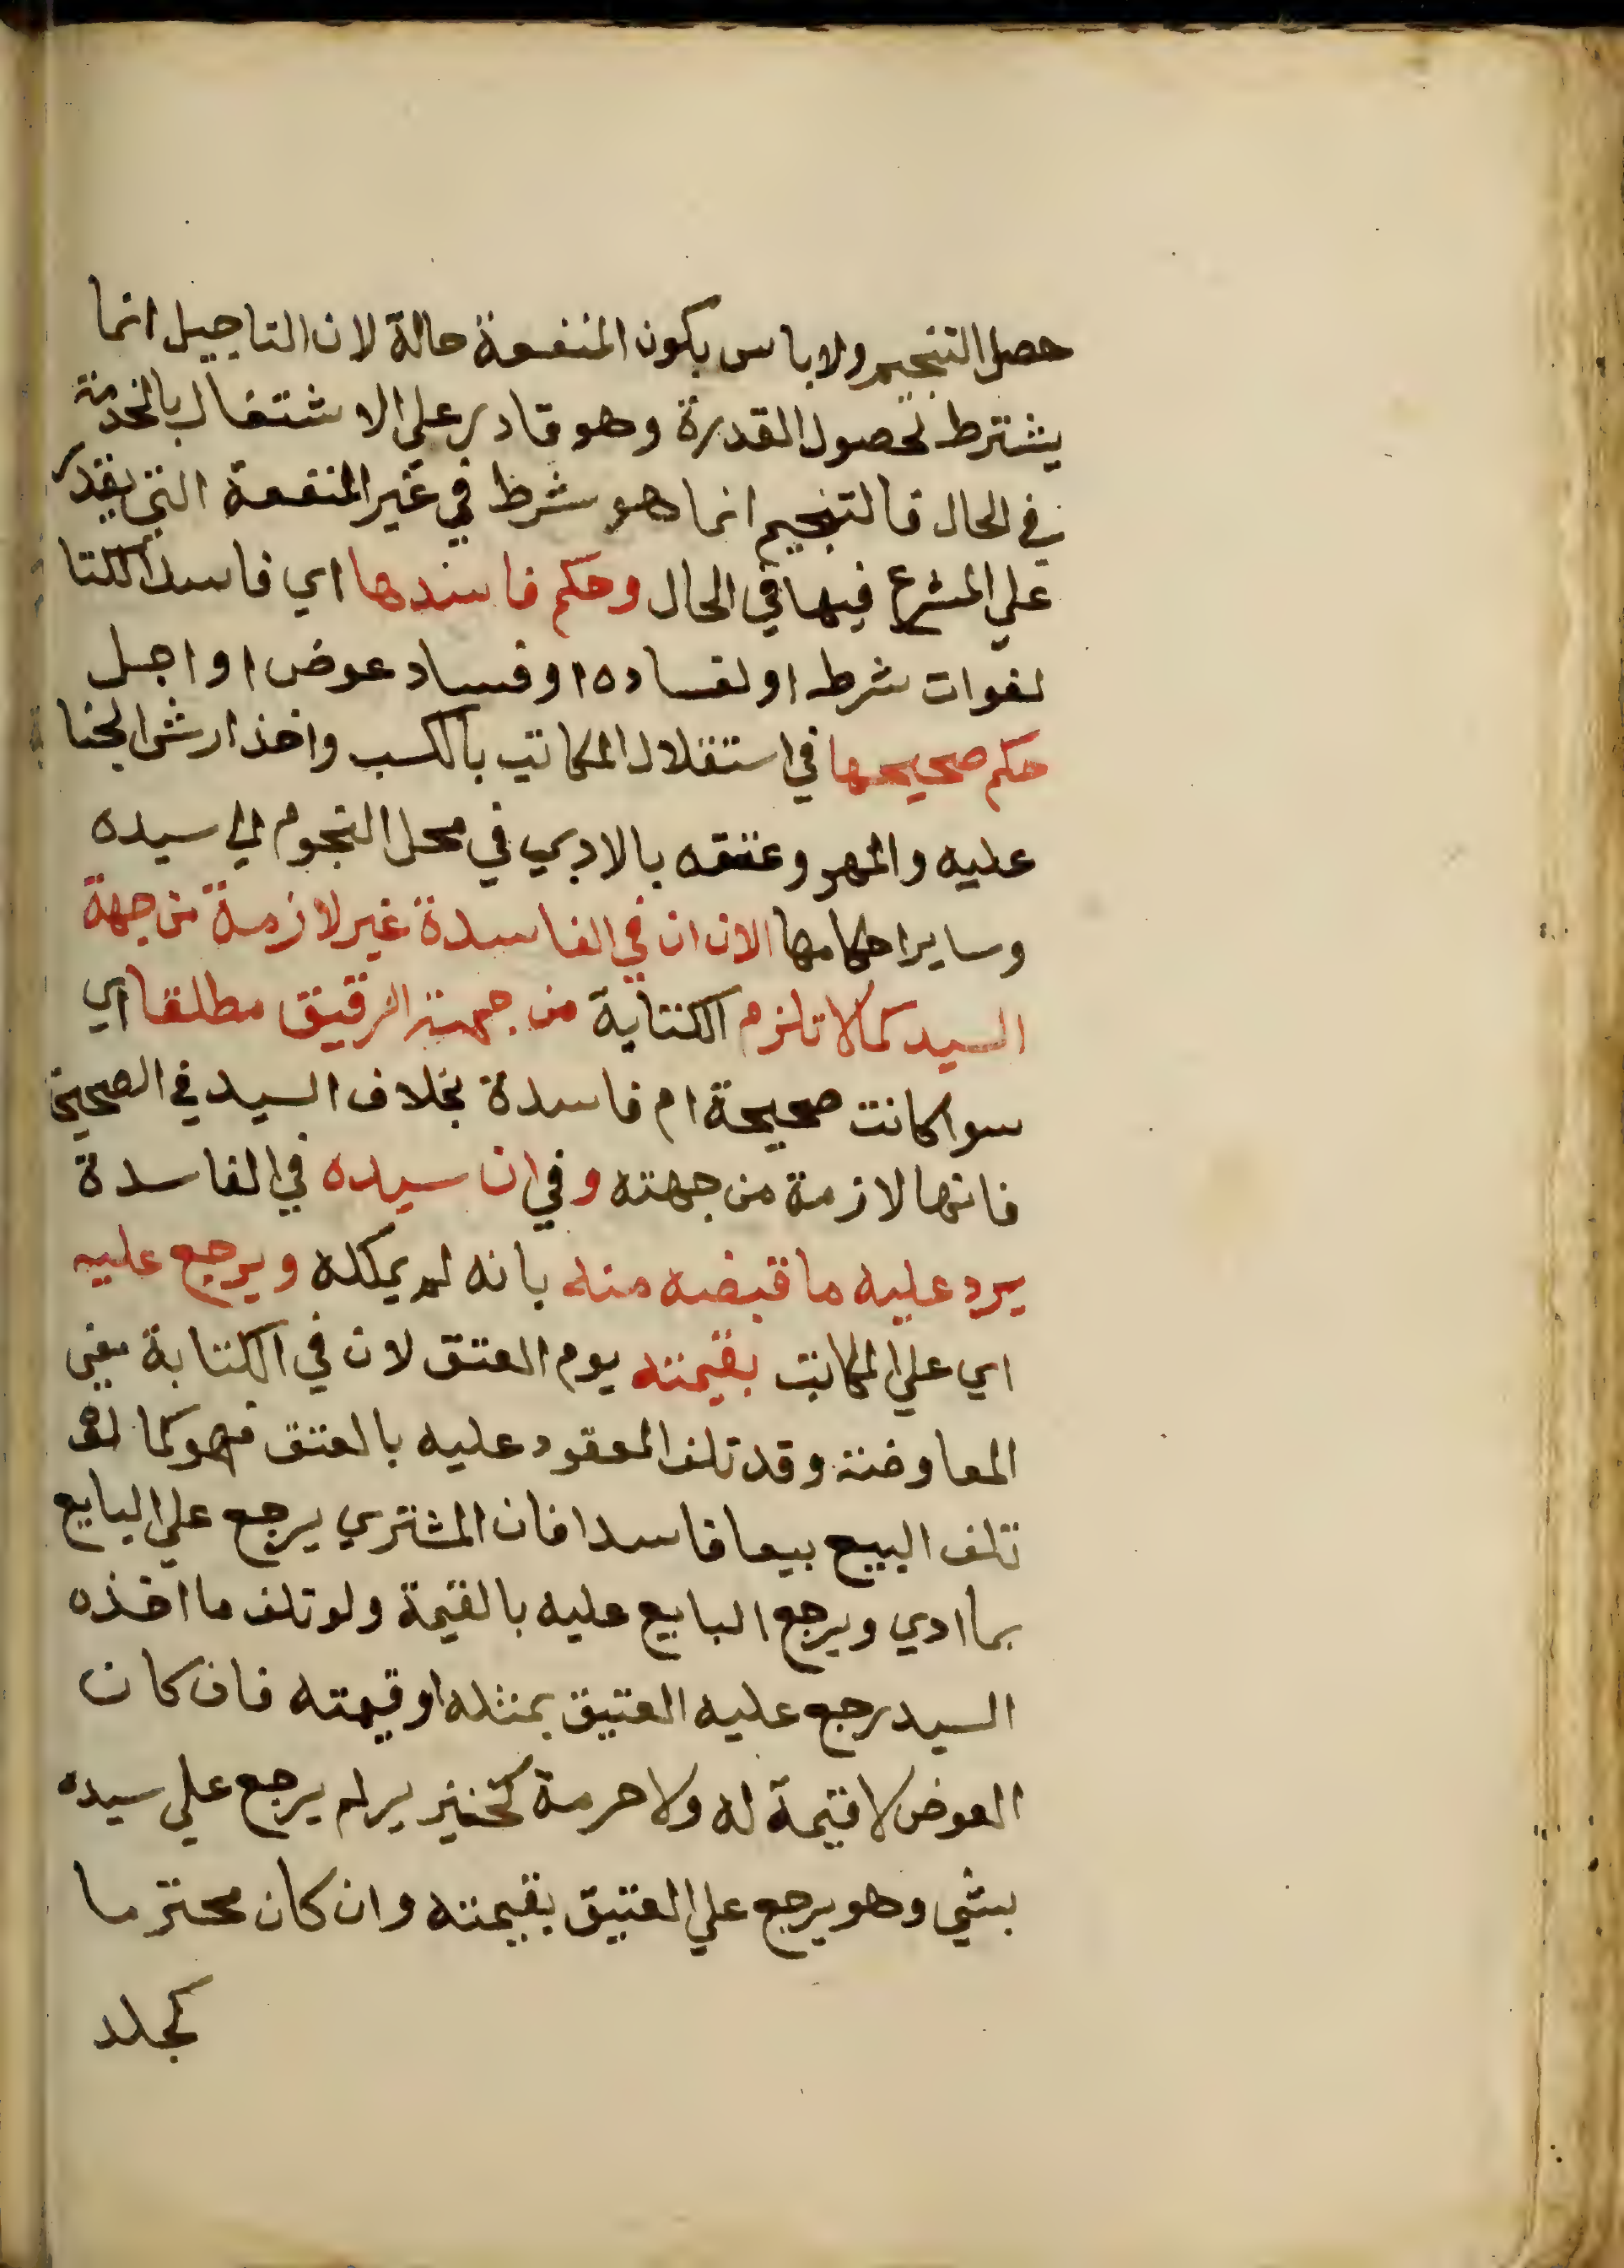 حصل التنجيم ولا باس بكون المنفعة حالة لان التاجيل انما
يشترط لحصول القدرة وهو قادر علي الاشتغال بالخدمة
في الحال فالتنجيم انما هو شرط في غير المنفعة التي يقدر
علي الشرع فيها في الحال وحكم فاسدها اي فاسد الكتا
لفوات شرط او لفساده او فساد عوض او اجل
حكم صحيحها في استقلال المكاتب بالكسب واخذ ارش الجنا
عليه والمهر وعتقه بالادي في محل النجوم الي سيده
وساير احكامها الان ان في الفاسدة غير لازمة من جهة
السيد كما لا تلزم الكتابة من جهة الرقيق مطلقا اي
سوا كانت صحيحة ام فاسدة بخلاف السيد في الصحيحة
فانها لازمة من جهته وفي ان سيده في الفاسدة
يرد عليه ما قبضه منه بانه لم يملكه ويرجع عليه
اي علي المكاتب بقيمته يوم العتق لان في الكتابة معني
المعاوضة وقد تلف المعقود عليه بالعتق فهو كما لو
تلف البيع بيعا فاسدا فان المشتري يرجع علي البايع
بما ادي ويرجع البايع عليه بالقيمة ولو تلف ما اخذه
السيد رجع عليه العتيق بمثله او قيمته فان كان
العوض لا قيمة له ولا حرمة كخنزير لم يرجع علي سيده
بشي وهو يرجع علي العتيق بقيمته وان كان محترما
كجلد